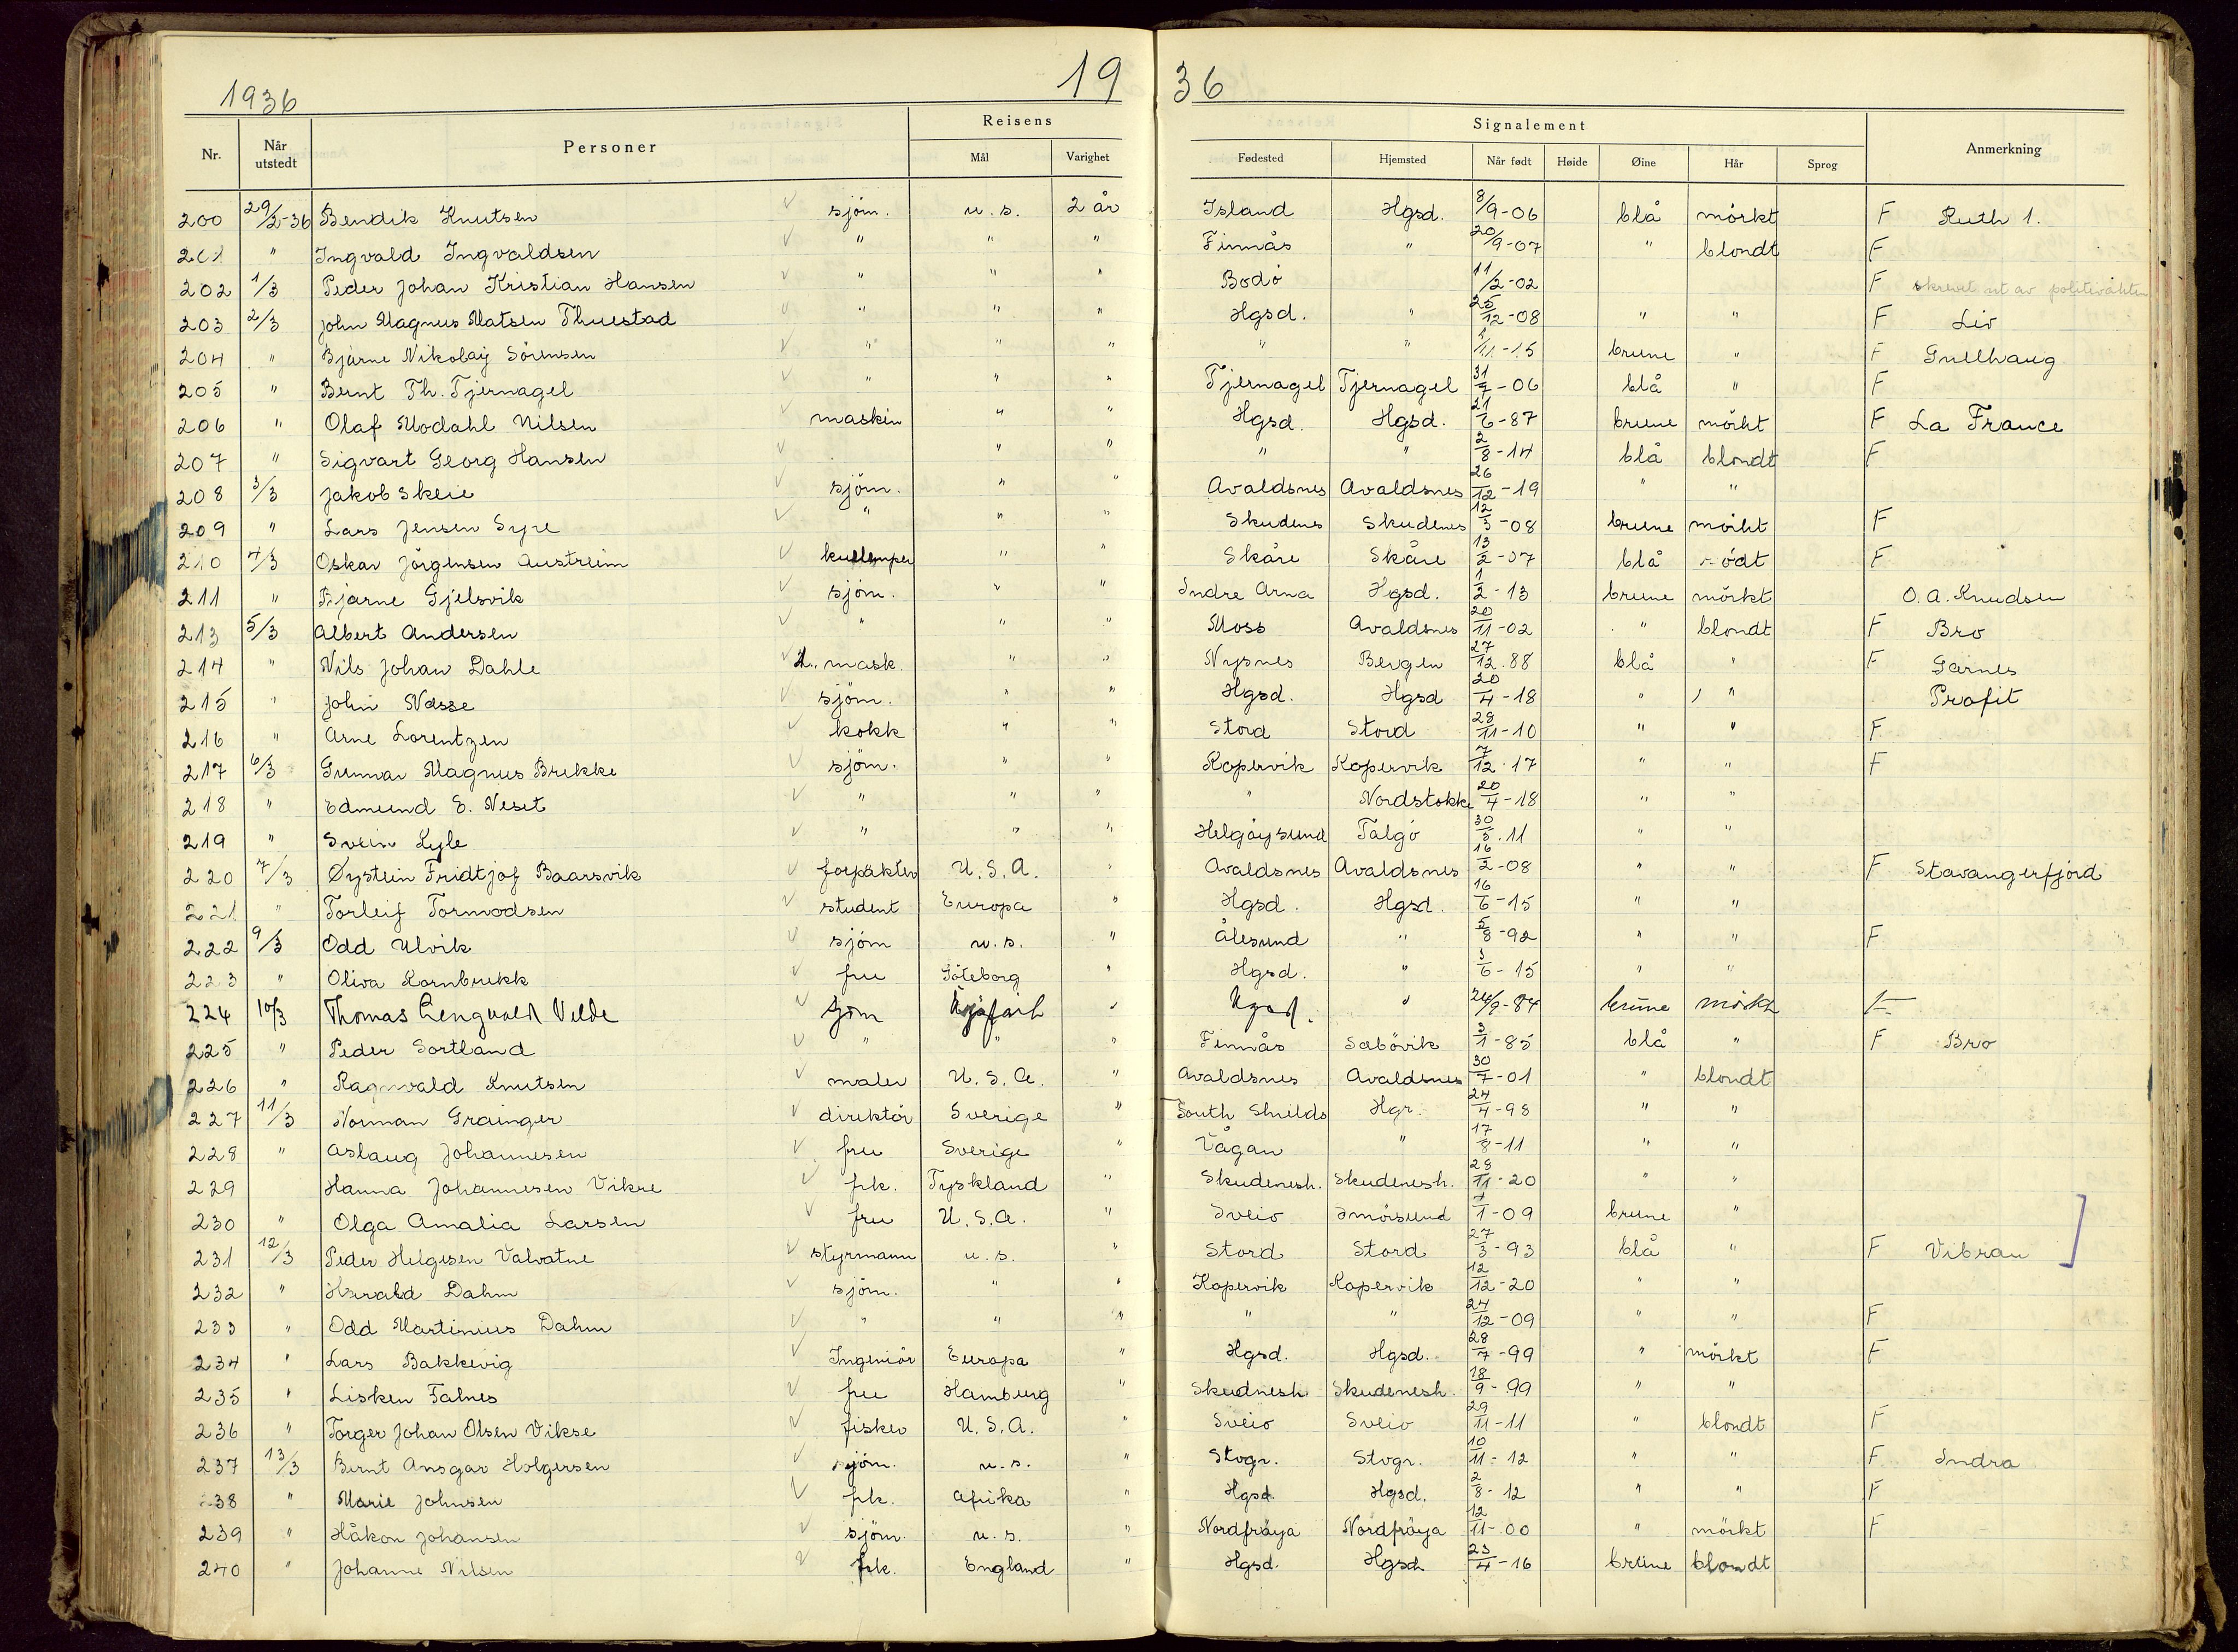 1936 19 36
Reisens Signalement
Nr. Når utstedt Personer Mål Varighet Fødested Hjemsted Når født Høide Øine Hår Sprog Anmerkning
200 29/2-36 Bendik Knutsen sjöm. u.s. 2 år Island Hgsd. 8/9-06 blå mörkt F Ruth 1.
201 " Ingvald Ingvaldsen " " " Finnås " 20/9-07 " blondt F
202 1/3 Peder Johan Kristian Hansen " " " Bodö 11/2-02 F skrevet ut av politivakten
203 2/3 John Magnus Matsen Thuestad " " " Hgsd. " 25/12-08 " " F Liv
204 " Bjarne Nikolaij Sörensen " " " " " 1/11-15 brune " F Gullhaug
205 " Bernt Th. Tjernagel " " " Tjernagel Tjernagel 31/7-06 blå " F
206 " Olaf Modahl Nilsen maskin " " Hgsd. Hgsd. 21/6-87 brune mörkt F La France
207 " Sigvart Georg Hansen " " " " 2/8-14 blå blondt F
208 3/3 Jakob Skeie sjöm. " " Avaldsnes Avaldsnes 26/12-19 " "
209 " Lars Jensen Syre " " " Skudenes Skudenes 12/3-08 brune mörkt F
210 4/3 Oskar Jörgensen Austreim kullemper " " Skåre Skåre 13/2-07 blå rödt F
211 " Bjarne Gjelsvik sjöm. " " Indre Arna Hgsd. 1/2-13 brune mörkt O.A. Knudsen
213 5/3 Albert Andersen " " " Moss Avaldsnes 20/11-02 " blondt F Bro
214 " Nils Johan Dahle mask. " " Nysnes Bergen 27/12.88 blå " F Garnes
215 " John Næsse sjöm. " " Hgsd. Hgsd 20/4-18 " " Profit
216 " Arne Lorentzen kokk " " Stord Stord 28/11-10 " " F
217 6/3 Gunnar Magnus Brekke sjöm. " " Kopervik Kopervik 7/12-17 " " F
218 " Edmund E. Neset " " " " Nordstokke 20/4-18 " "
219 " Svein Lyle " " " Helgöysund Talgö 30/3.11 " "
220 7/3 Øystein Fridtjof Baarsvik forpakter U.S.A. " Avaldsnes Avaldsnes 16/2-08 " " F Stavangerfjord
221 " Torleif Tormodsen student Europa " Hgsd. Hgsd. 16/6-15 " "
222 9/3 Odd Ulvik sjöm u.s. " Ålesund " 5/8-92 " " F
223 " Oliva Kornbrekk fru Göteborg " Hgsd. " 3/6-15 " "
224 10/3 Thomas Velde sjöm " Hgsd. " 24/9-84 brune mörkt F
225 " Peder Sortland " " " Finnås Sæbövik 3/1-85 blå " F Bro
226 " Ragnvald Knutsen maler U.S.A. " Avaldsnes Avaldsnes 30/7-01 " blondt
227 11/3 Norman Grainger direktör Sverige " South Shilds Hgr. 24/4-98 " "
228 " Aslaug Johannesen fru Sverige " Vågan " 17/8-11 " "
229 Hanna Johannesen Vikre frk. Tyskland " Skudenesh. Skudenesh. 28/11-20 " "
230 " Olga Amalia Larsen fru U.S.A. " Sveio Smörsund 7/1-09 brune "
231 12/3 Peder Helgesen Valvatne styrmann u.s. " Stord Stord 27/3-93 blå " F Vibran
232 " Harald Dahm sjöm. " " Kopervik Kopervik 12/12-20 " "
233 " Odd Martinius Dahm " " " " " 24/12-09 " " F
234 " Lars Bakkevig Ingeniör Europa " Hgsd. Hgsd. 28/7-99 " mörkt F
235 " Lisken Falnes fru Hamburg " Skudnesh Skudenesh. 18/9-99 " "
236 " Torger Johan Olsen Vikse fisker U.S.A. " Sveio Sveio 29/11-11 " blondt F
237 13/3 Bernt Ansgar Holgersen sjöm. u.s. " Stvgr. Stvgr. 10/11-12 " " F Indra
238 " Marie Johnsen frk. Afrika " Hgsd. Hgsd. 2/8-12 " " F
239 " Håkon Johansen sjöm. u.s. " Nordfröya Nordfröya 12/11-00 " mörkt F
240 " Johanne Nilsen frk. England " Hgsd. Hgsd. 23/4-16 brune blondt